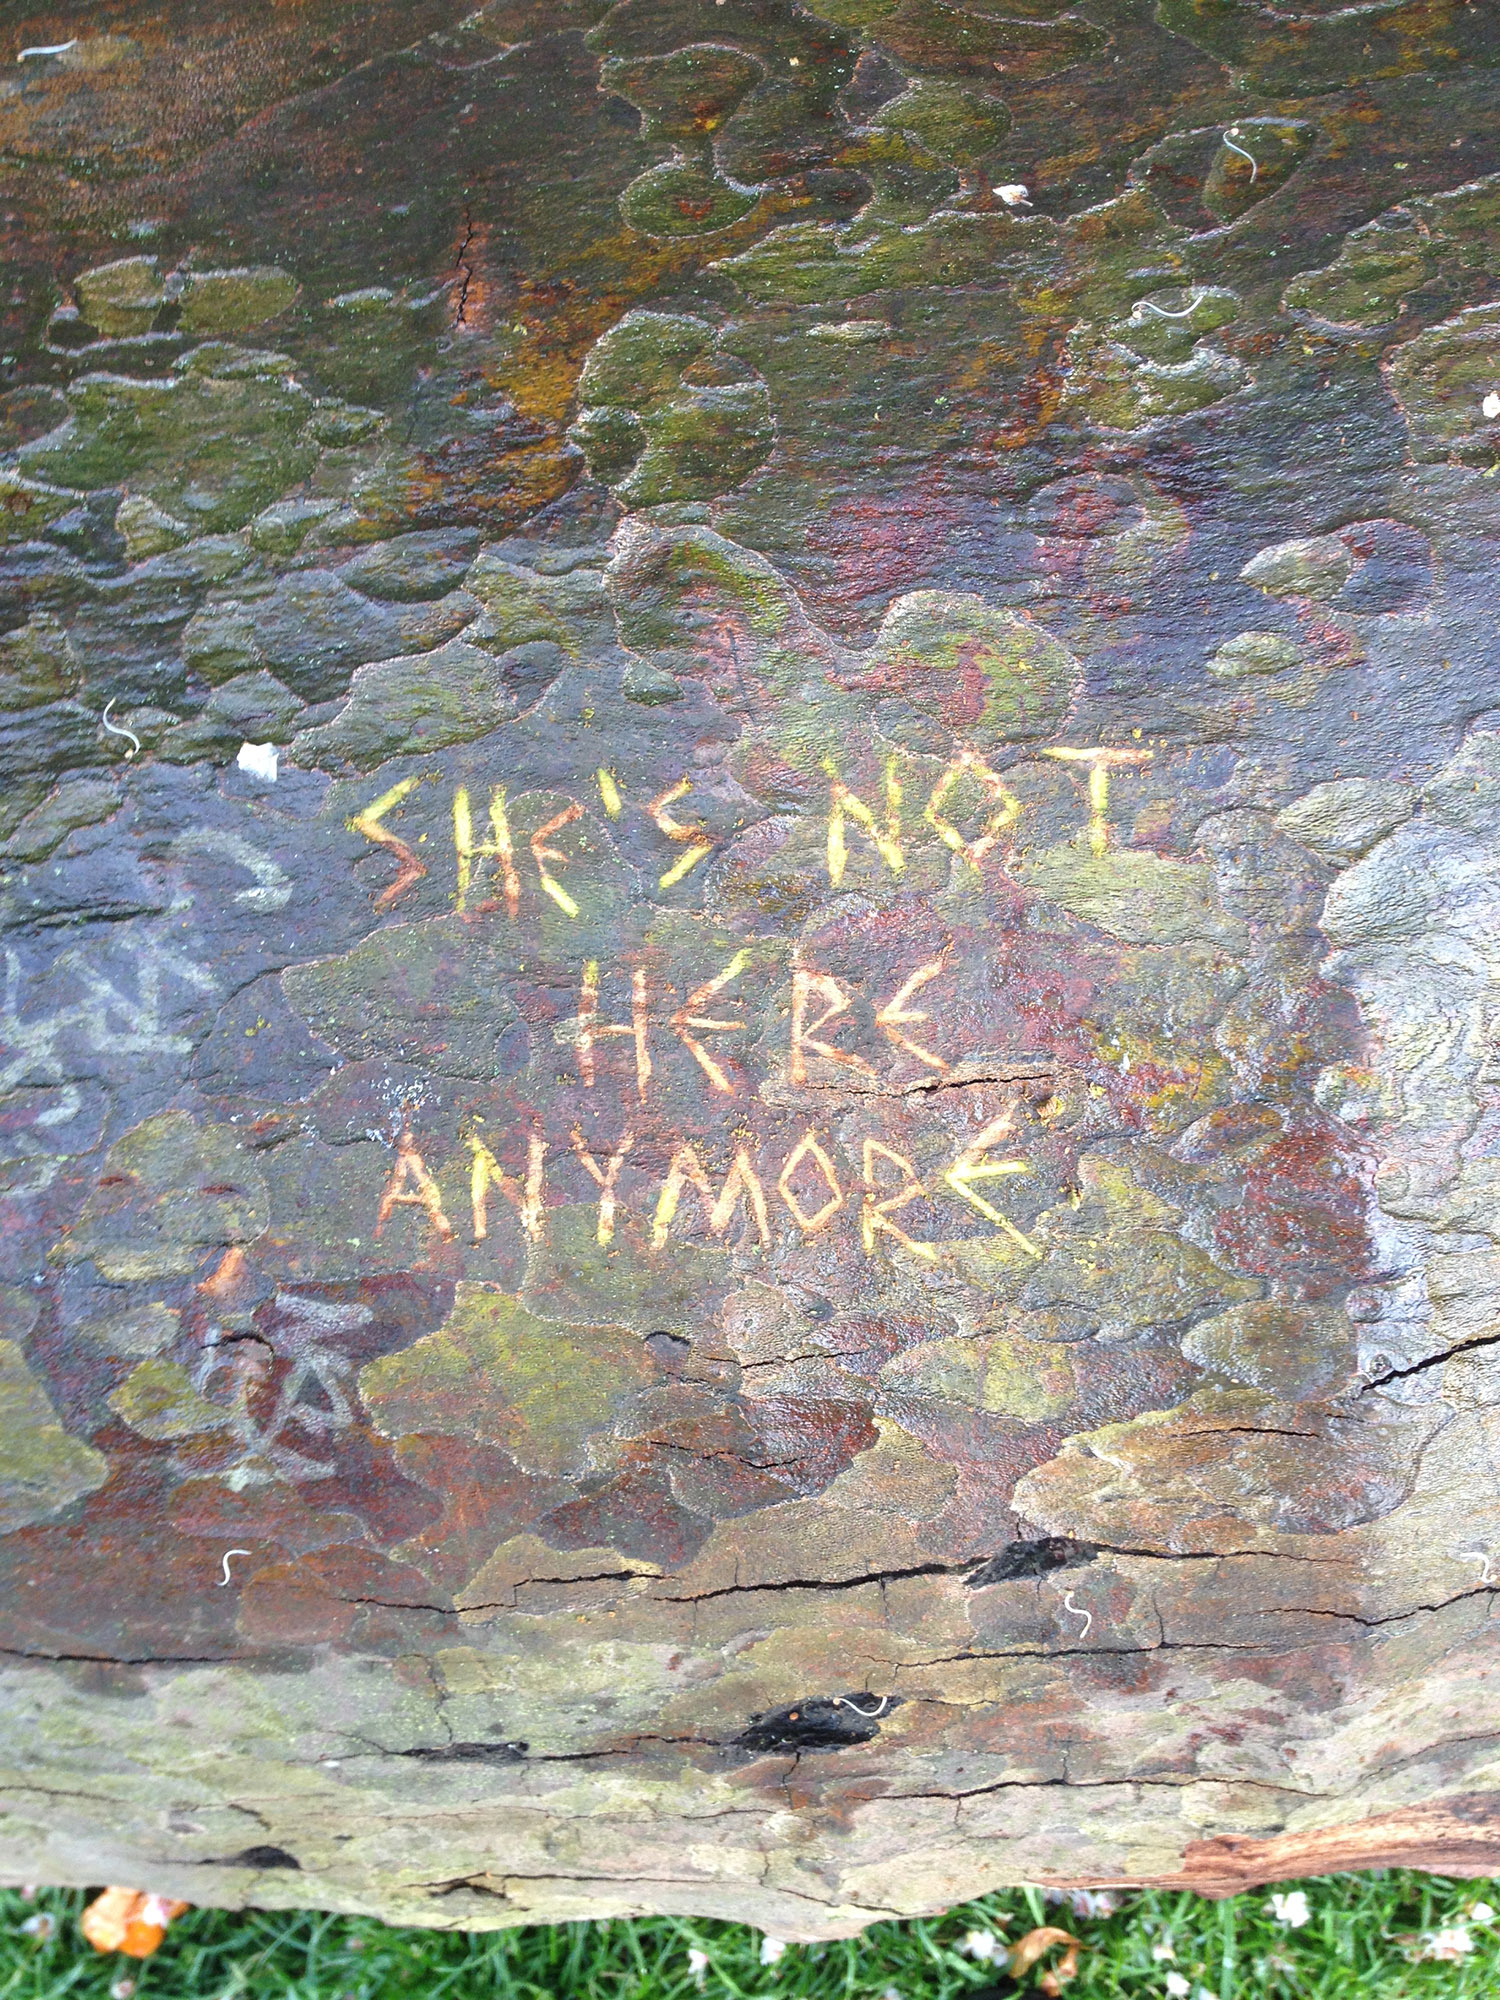 SHE'S NOT
HERE
ANYMORE